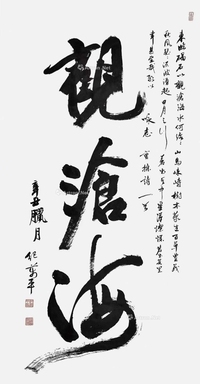 東臨碣石以觀滄海水何澹澹山島竦峙樹木叢生百草豐茂
秋風蕭瑟洪波湧起日月之行若出其中星漢燦爛若出其里
幸甚至哉歌以詠志曹操詩一首
觀滄海
辛丑臘月